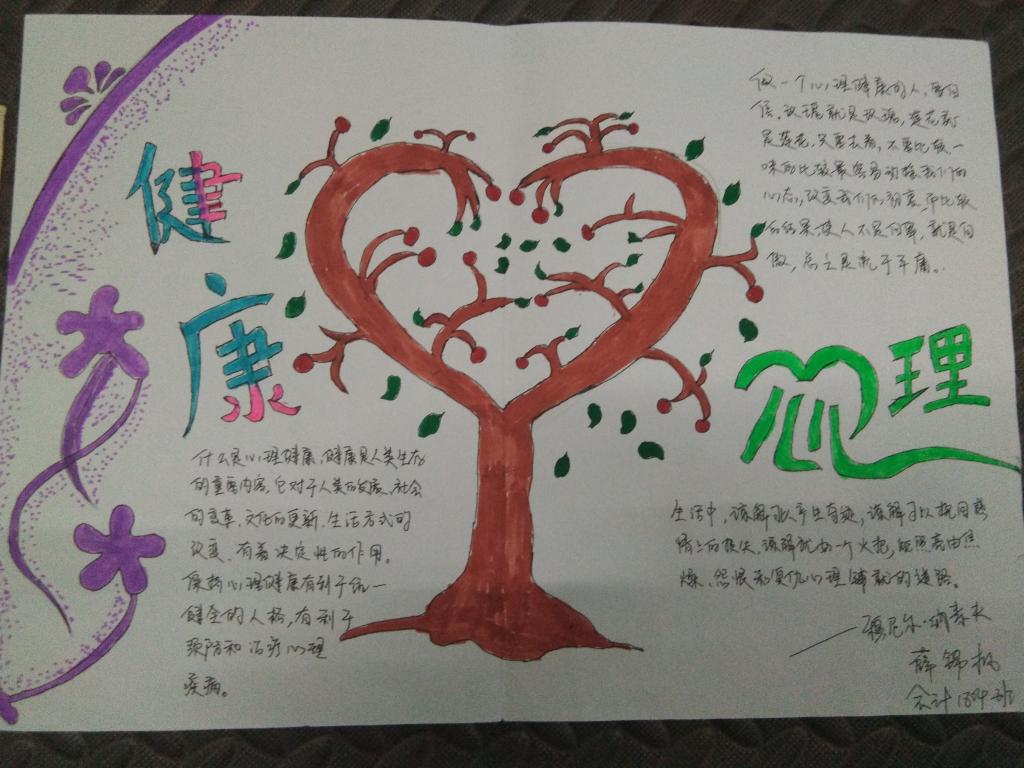 健康
心理
做一个心理健康的人,要自
信,玫瑰就是玫瑰,莲花就
是莲花,只要去看,不要比较。一
味的比较最容易动摇我们的
心态,改变我们的初衷,而比较
的结果使人不是自卑,就是自
傲,总之是流于平庸。
什么是心理健康,健康是人类生存
的重要内容,它对于人类的发展,社会
的变革,文化的更新,生活方式的
改变,有着决定性的作用。
保持心理健康有利于统一
健全的人格,有利于
预防和治疗心理
疾病。
生活中,谅解可以产生奇迹,谅解可以挽回感
情上的损失,谅解犹如一个火把,能照亮由焦
燥、怨恨和复仇心理铺就的道路。
——穆尼尔·纳素夫
薛锦枫
会计1804班